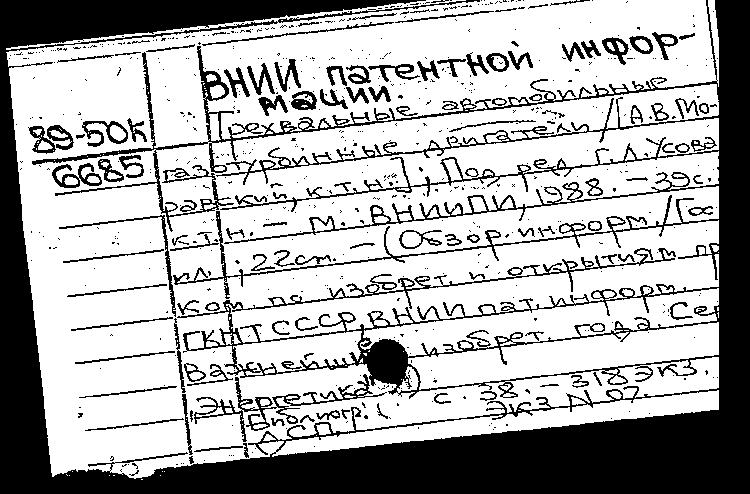 ВНИИ патентной инфор-
мации.
89-50к
6685
Трехвальные автомобильные
газотурбинные двигатели / [А.В.Мо-
равский, к.т.н.]; Под ред. Г.Л.Усова
к.т.н. – М.: ВНИИПИ, 1988. – 39с.
ил. ; 22см. – (Обзор. информ. / Гос
ком. по изобрет. и открытиям пр
ГКНТ СССР, ВНИИ пат. информ.
Важнейшие изобрет. года. Сер
"Энергетика")
Библиогр.: с. 38. – 318 экз.
ДСП. Экз N 07.